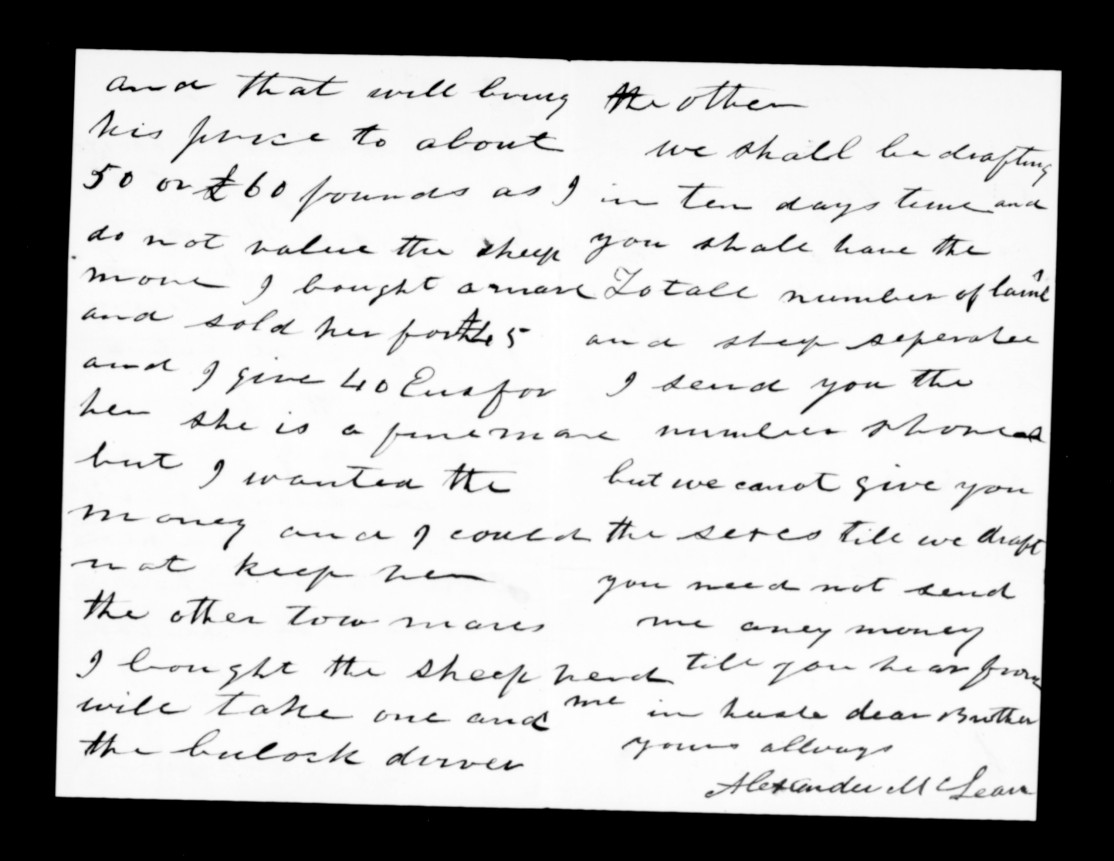 and that will bring
his price to about
50 or £60 pounds as I
do not value the sheep
more I bought a mare
and sold her for £45
and I give 40 Ews for
her she is a fine mare
but I wanted the
money and I could
not keep her
the other tow mares
I bought the sheep herd
will take one and
the bulock driver
the other
we shall be drafting
in ten days time and
you shall have the
Totall number of lamb
and sheep seperatee
I send you the
number shorned
but we canot give you
the sexes till we draft
you need not send
me aney money
till you hear from
me in haste dear Brother
yours allways
Alexander McLean